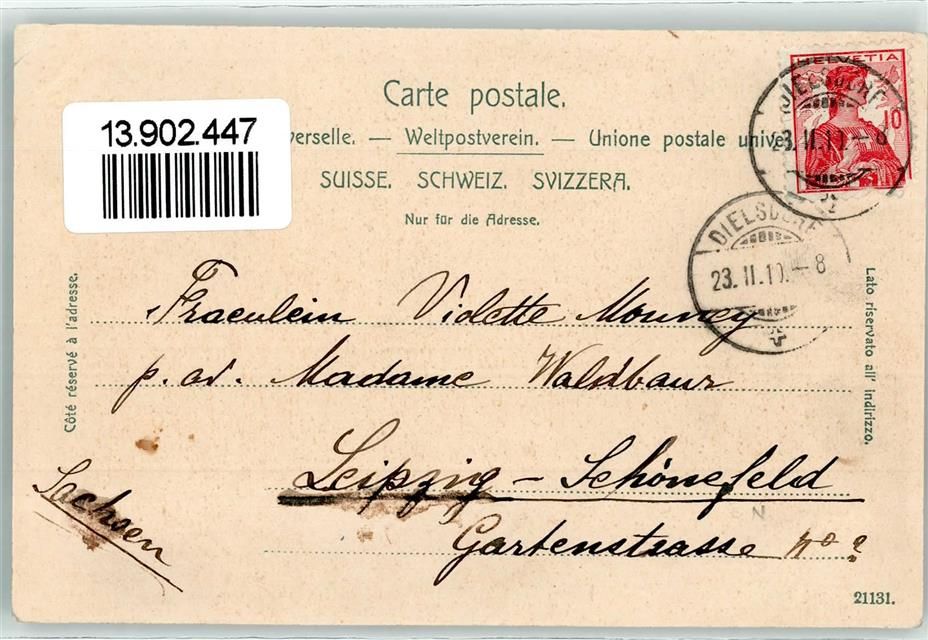 Carte postale.
13.902.447
verselle. — Weltpostverein. — Unione postale unive
SUISSE. SCHWEIZ. SVIZZERA.
Nur für die Adresse.
HELVETIA
10
DIELSDORF
23.II.10.–8
DIELSDORF
23.II.10.–8
Côté réservé à l'adresse.
Lato riservato all' indirizzo.
Fraeulein Violette Mounney
p. ad. Madame Waldbaur
Leipzig – Schönefeld
Gartenstrasse no ?
Sachsen
N
21131.